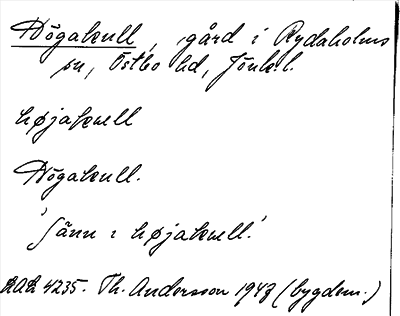 Högakull, gård i Rydaholms
sn, Östbo hd, Jönk. l.
højakull
Högakull.
'Jänn i højakull.'
4235. Th. Andersson 1947 (bygdem.)